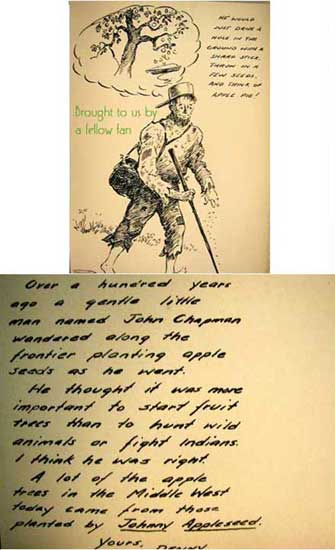 HE WOULD
JUST DRIVE A
HOLE IN THE
GROUND WITH A
SHARP STICK,
THROW IN A
FEW SEEDS,
AND THINK OF
APPLE PIE!
Brought to us by
a fellow fan
Over a hundred years
ago a gentle little
man named John Chapman
wandered along the
frontier planting apple
seeds as he went.
He thought it was more
important to start fruit
trees than to hunt wild
animals or fight Indians.
I think he was right.
A lot of the apple
trees in the Middle West
today came from those
planted by Johnny Appleseed.
Yours, DENNY